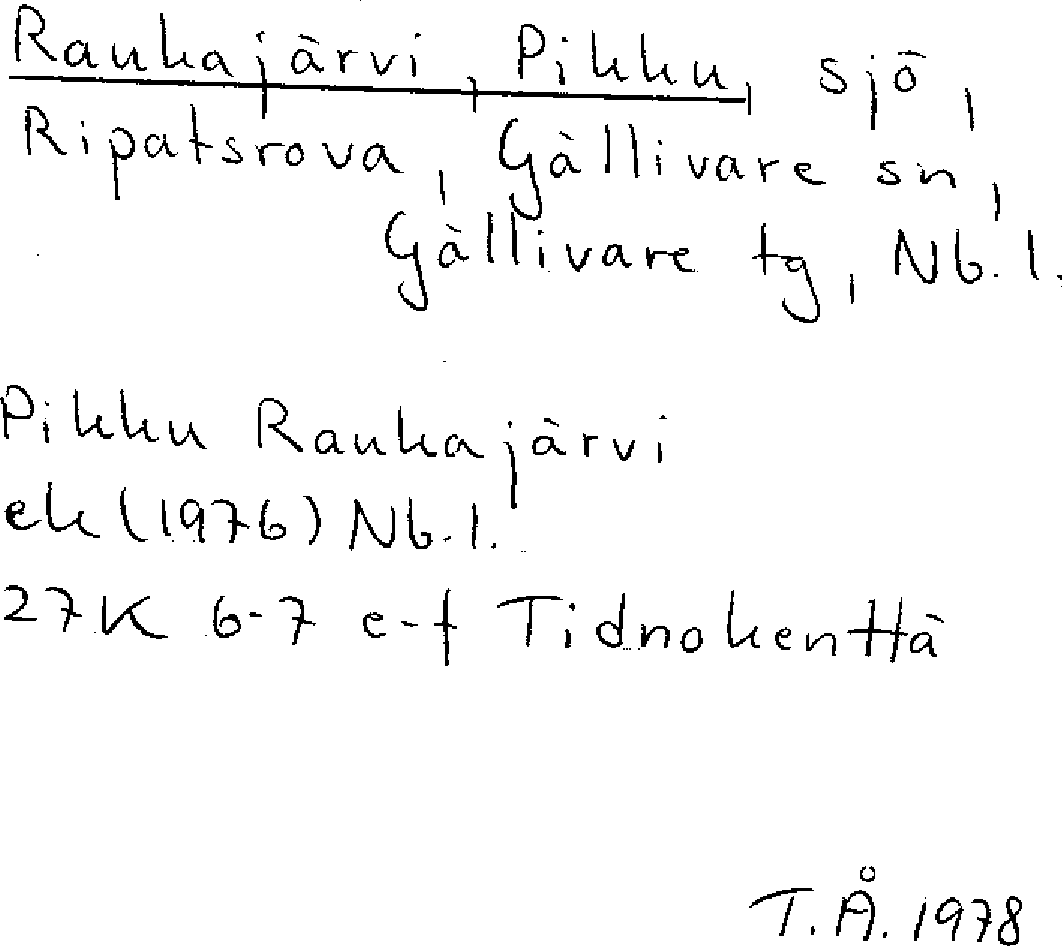 Raukajärvi, Pikku, sjö,
Ripatsrova, Gällivare sn,
Gällivare tg, Nb. l.
Pikku Raukajärvi
ek (1976) Nb. l.
27K 6-7 e-f Tidnokenttä
T.Å. 1978